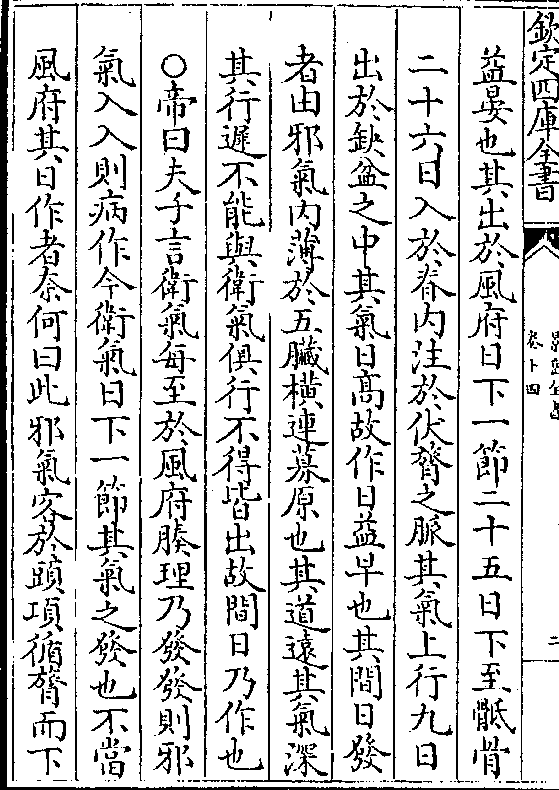 欽定四庫全書
卷十四
二
益晏也其出於風府日下一節二十五日下至骶骨
二十六日入於脊內注於伏膂之脈其氣上行九日
出於缺盆之中其氣日高故作日益早也其間日發
者由邪氣內薄於五臟橫連募原也其道遠其氣深
其行遲不能與衛氣俱行不得皆出故間日乃作也
○帝曰夫子言衛氣每至於風府腠理乃發發則邪
氣入入則病作今衛氣日下一節其氣之發也不當
風府其日作者奈何曰此邪氣客於頭項循膂而下